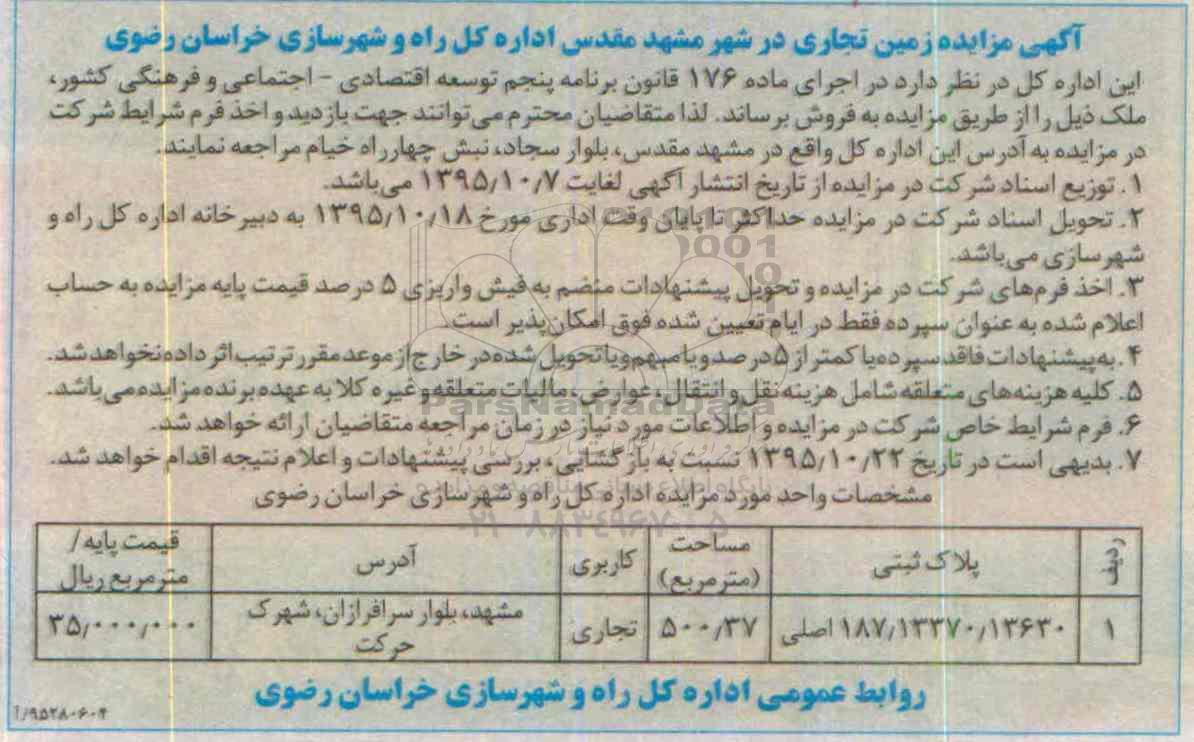 آگهی مزایده زمین تجاری در شهر مشهد مقدس اداره کل راه و شهرسازی خراسان رضوی
این اداره کل در نظر دارد در اجرای ماده ۱۷۶ قانون برنامه پنجم توسعه اقتصادی - اجتماعی و فرهنگی کشور،
ملک ذیل را از طریق مزایده به فروش برساند. لذا متقاضیان محترم می‌توانند جهت بازدید و اخذ فرم شرایط شرکت
در مزایده به آدرس این اداره کل واقع در مشهد مقدس، بلوار سجاد، نبش چهارراه خیام مراجعه نمایند.
۱. توزیع اسناد شرکت در مزایده از تاریخ انتشار آگهی لغایت ۱۳۹۵/۱۰/۷ می‌باشد.
۲. تحویل اسناد شرکت در مزایده حداکثر تا پایان وقت اداری مورخ ۱۳۹۵/۱۰/۱۸ به دبیرخانه اداره کل راه و
شهرسازی می‌باشد.
۳. اخذ فرم‌های شرکت در مزایده و تحویل پیشنهادات منضم به فیش واریزی ۵ درصد قیمت پایه مزایده به حساب
اعلام شده به عنوان سپرده فقط در ایام تعیین شده فوق امکان‌پذیر است.
۴. به پیشنهادات فاقد سپرده یا کمتر از ۵ درصد و یا مبهم و یا تحویل شده در خارج از موعد مقرر ترتیب اثر داده نخواهد شد.
۵. کلیه هزینه‌های متعلقه شامل هزینه نقل و انتقال، عوارض، مالیات متعلقه و غیره کلا به عهده برنده مزایده می‌باشد.
۶. فرم شرایط خاص شرکت در مزایده و اطلاعات مورد نیاز در زمان مراجعه متقاضیان ارائه خواهد شد.
۷. بدیهی است در تاریخ ۱۳۹۵/۱۰/۲۲ نسبت به بازگشایی، بررسی پیشنهادات و اعلام نتیجه اقدام خواهد شد.
مشخصات واحد مورد مزایده اداره کل راه و شهرسازی خراسان رضوی
ردیف پلاک ثبتی مساحت (مترمربع) کاربری آدرس قیمت پایه/ مترمربع ریال
۱ ۱۸۷/۱۳۳۷۰/۱۳۶۳۰ اصلی ۵۰۰/۳۷ تجاری مشهد، بلوار سرافرازان، شهرک حرکت ۳۵/۰۰۰/۰۰۰
روابط عمومی اداره کل راه و شهرسازی خراسان رضوی
ParsNamadData
۰۲۱-۸۸۳۴۹۶۷۰-۵